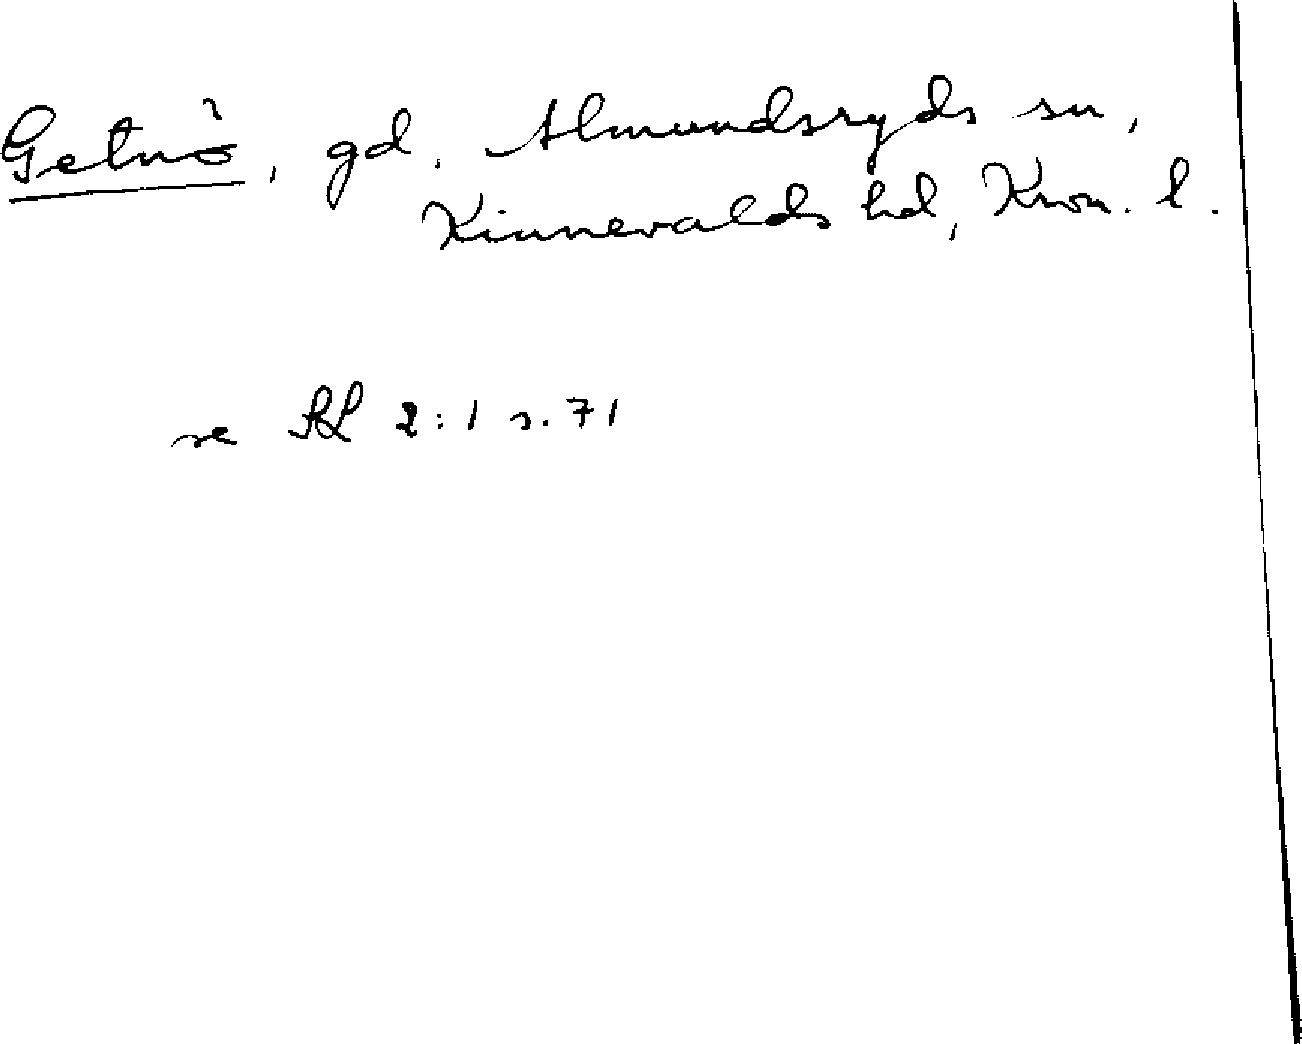 Getnö, gd. Almundsryds sn,
Kinnevalds hd, Kron. l.
se SL 2:1 s. 71